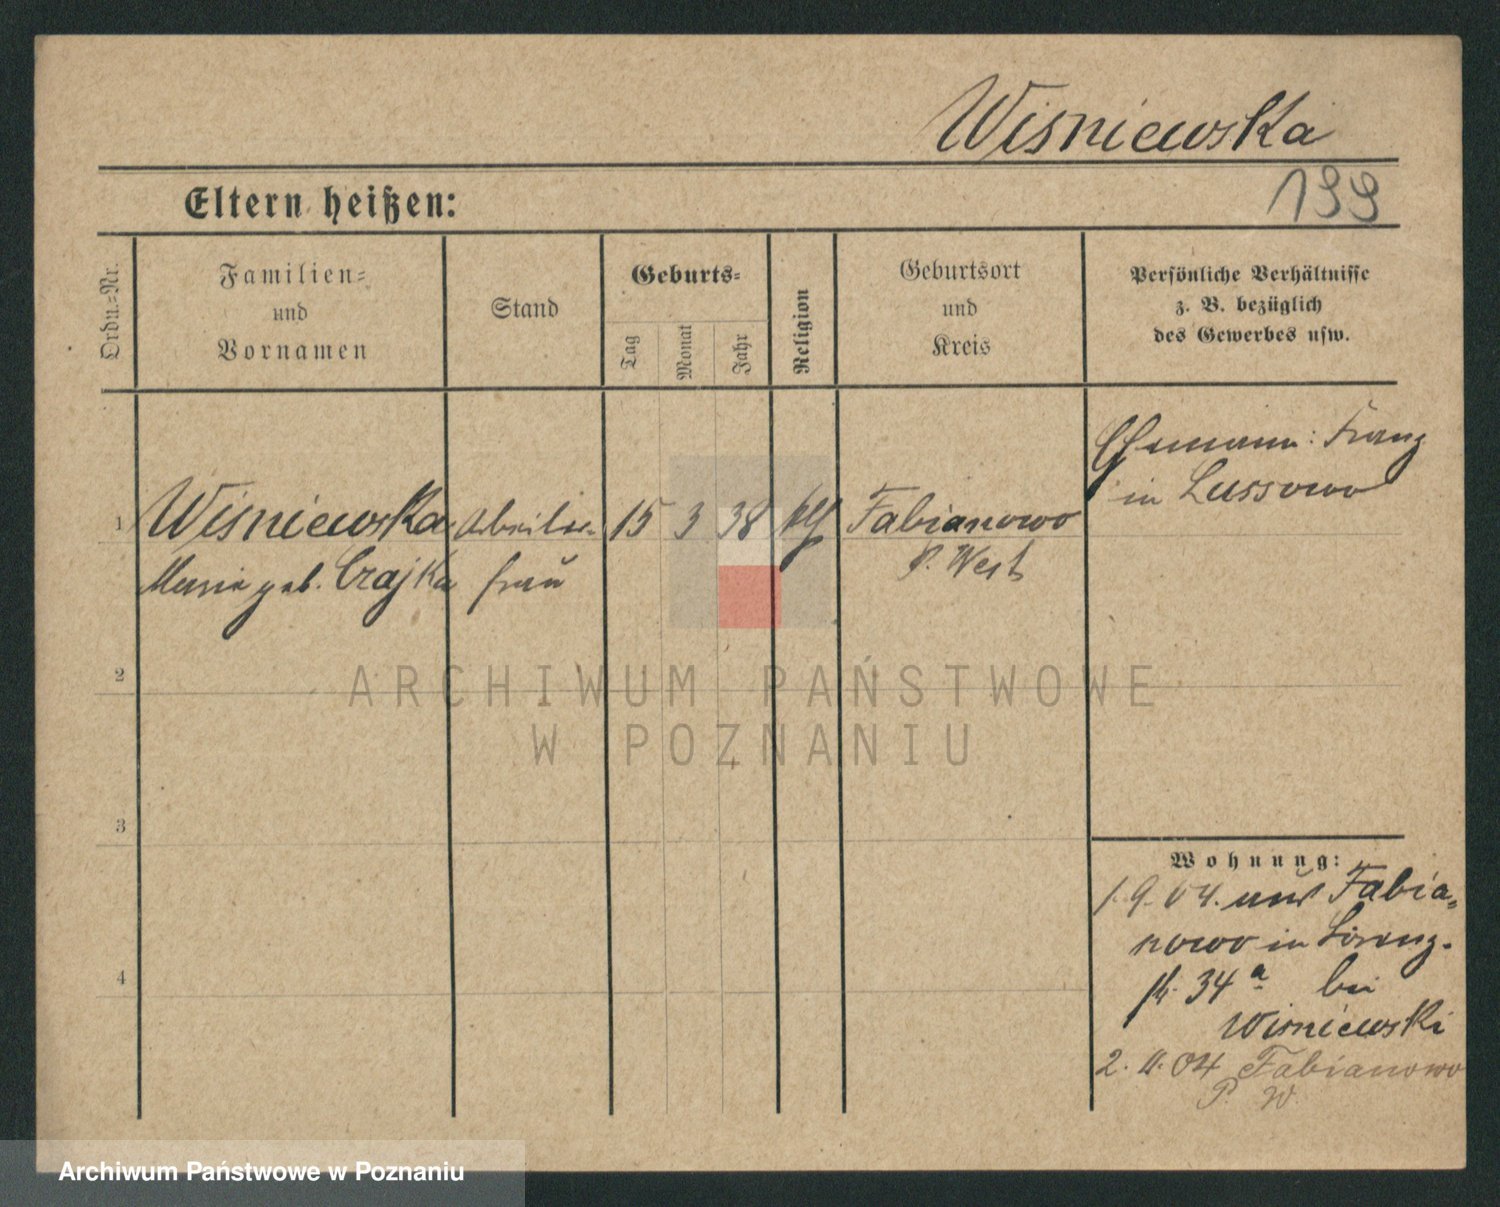 Wisniewska
199
Eltern heißen:
Ordn.=Nr.
Familien=
und
Vornamen
Stand
Geburts=
Tag
Monat
Jahr
Religion
Geburtsort
und
Kreis
Persönliche Verhältnisse
z. B. bezüglich
des Gewerbes usw.
Ehemann: Franz
in Lussowo
1 Wisniewska Arbeiter- 15 3 38 kth Fabianowo
Marie geb. Czajka frau P. West
2
ARCHIWUM PAŃSTWOWE
W POZNANIU
3
Wohnung:
1. 9. 04. aus Fabia=
nowo in Lorenz-
4
str. 34a bei
Wisniewski
2. 11. 04 Fabianowo
P. W.
Archiwum Państwowe w Poznaniu